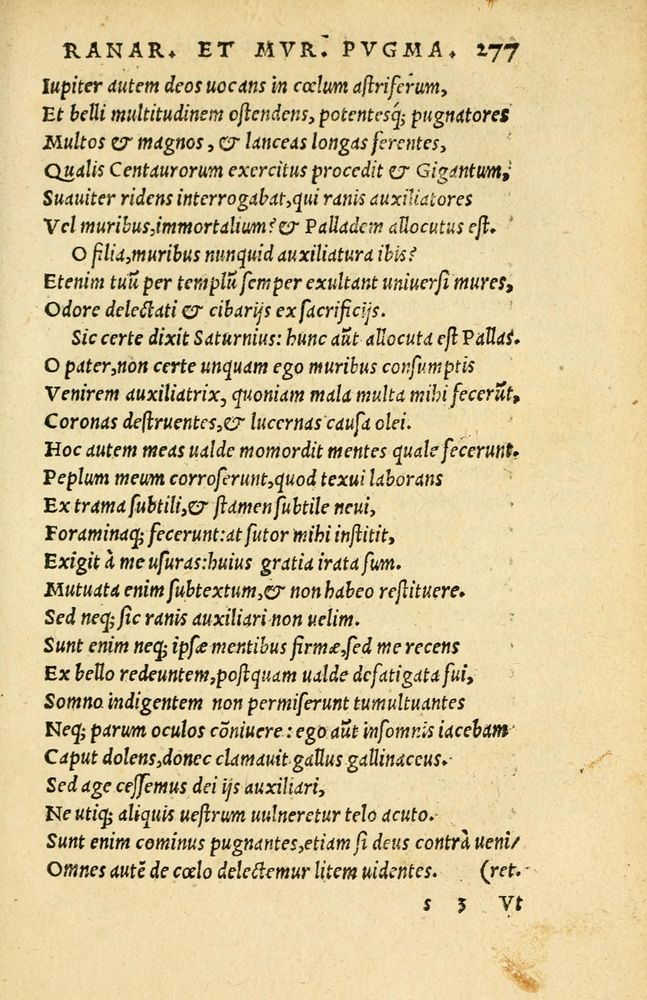 RANAR. ET MVR. PVGMA. 277
Iupiter autem deos uocans in cœlum astriferum,
Et belli multitudinem ostendens, potentesq́; pugnatores
Multos & magnos, & lanceas longas ferentes,
Qualis Centaurorum exercitus procedit & Gigantum,
Suauiter ridens interrogabat, qui ranis auxiliatores
Vel muribus, immortalium? & Palladem allocutus est.
O filia, muribus nunquid auxiliatura ibis?
Etenim tuū per templū semper exultant uniuersi mures,
Odore delectati & cibarijs ex sacrificijs.
Sic certe dixit Saturnius: hunc aūt allocuta est Pallas.
O pater, non certe unquam ego muribus consumptis
Venirem auxiliatrix, quoniam mala multa mihi fecerūt,
Coronas destruentes, & lucernas causa olei.
Hoc autem meas ualde momordit mentes quale fecerunt.
Peplum meum corroserunt, quod texui laborans
Ex trama subtili, & stamen subtile neui,
Foraminaq; fecerunt: at sutor mihi institit,
Exigit à me usuras: huius gratia irata sum.
Mutuata enim subtextum, & non habeo restituere.
Sed neq; sic ranis auxiliari non uelim.
Sunt enim neq; ipsæ mentibus firmæ, sed me recens
Ex bello redeuntem, postquam ualde defatigata fui,
Somno indigentem non permiserunt tumultuantes
Neq; parum oculos cōniuere: ego aūt insomnis iacebam
Caput dolens, donec clamauit gallus gallinaceus.
Sed age cessemus dei ijs auxiliari,
Ne utiq; aliquis uestrum uulneretur telo acuto.
Sunt enim cominus pugnantes, etiam si deus contrà ueni/
Omnes autē de cœlo delectemur litem uidentes. (ret.
s 3 Vt